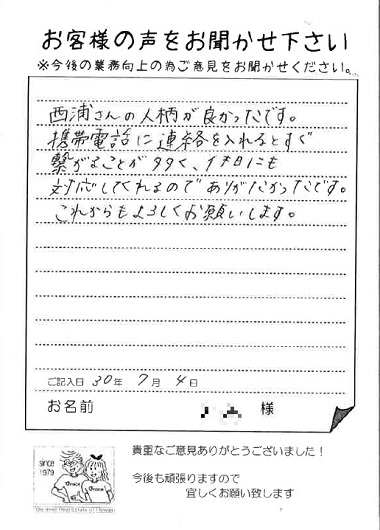 お客様の声をお聞かせ下さい
※今後の業務向上の為ご意見をお聞かせください。
西浦さんの人柄が良かったです。
携帯電話に連絡を入れるとすぐ
繋がることが多く、休日にも
対応してくれるのでありがたかったです。
これからもよろしくお願いします。
ご記入日 30年 7月 4日
お名前 様
since 1979
貴重なご意見ありがとうございました！
今後も頑張りますので
宜しくお願い致します